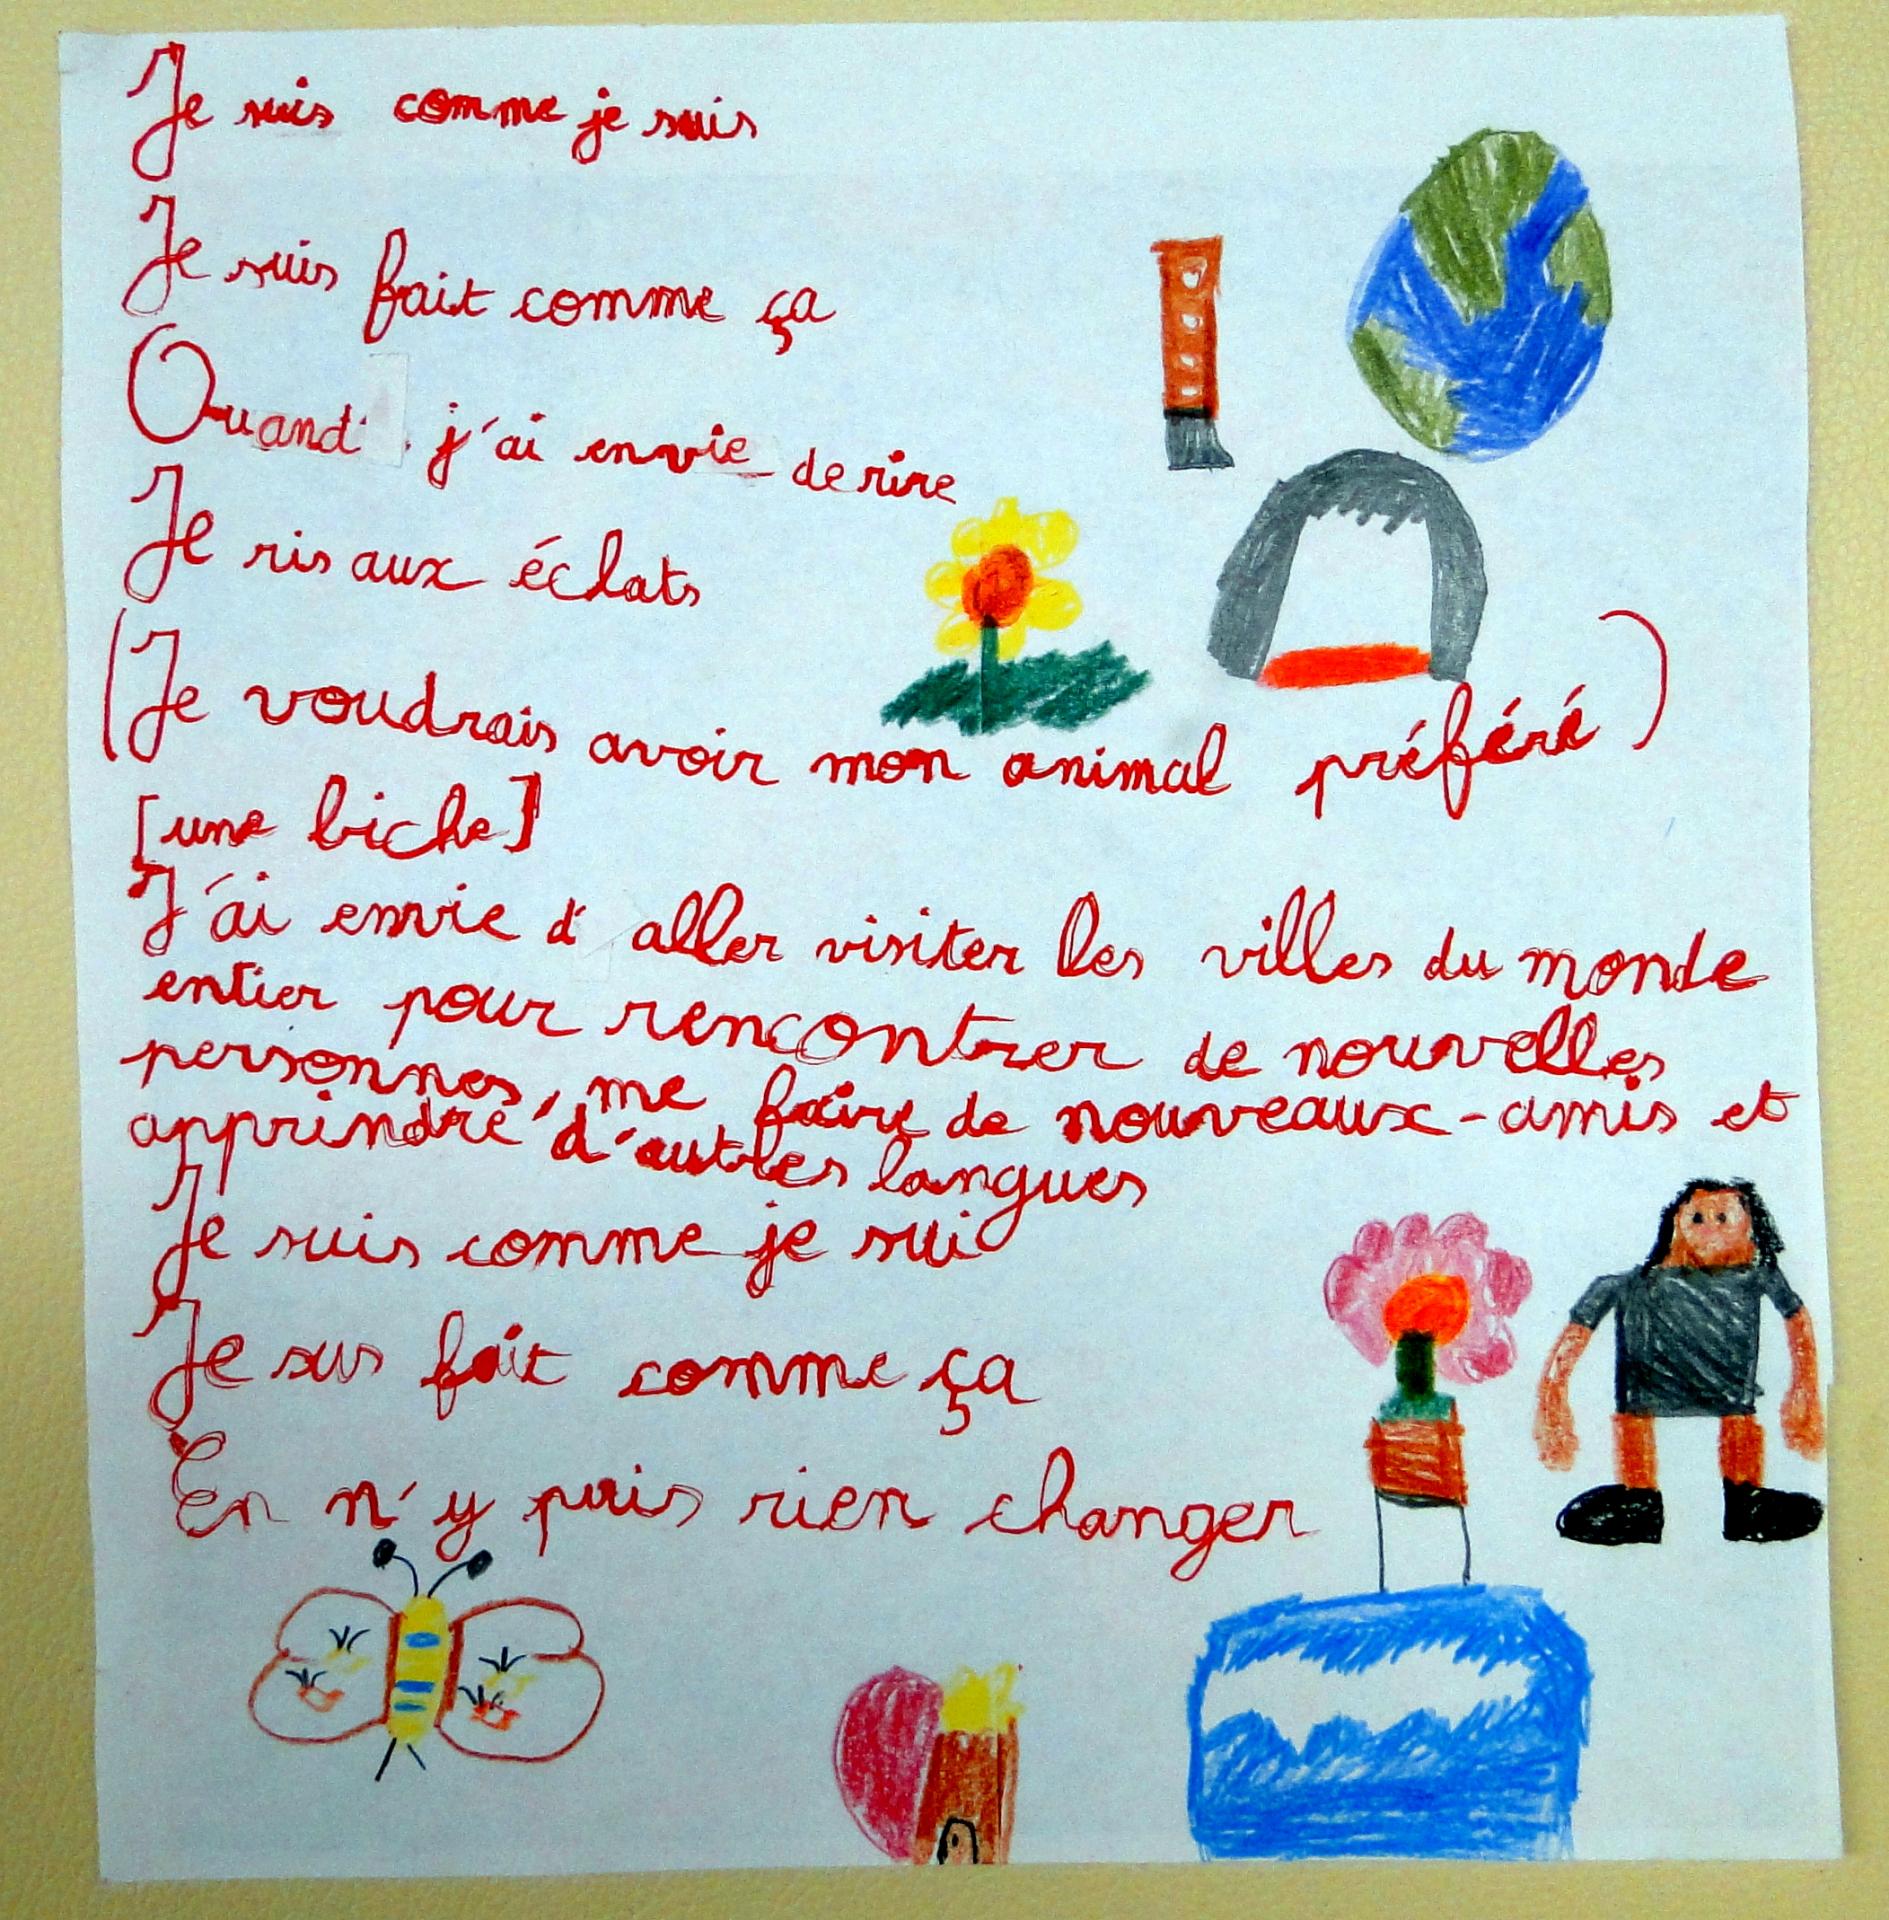 Je suis comme je suis
Je suis fait comme ça
Quand j'ai envie de rire
Je ris aux éclats
(Je voudrais avoir mon animal préféré)
[une biche]
J'ai envie d'aller visiter les villes du monde
entier pour rencontrer de nouvelles
personnes, me faire de nouveaux-amis et
apprindre d'autres langues
Je suis comme je sui
Je sus fait comme ça
En n'y puis rien changer